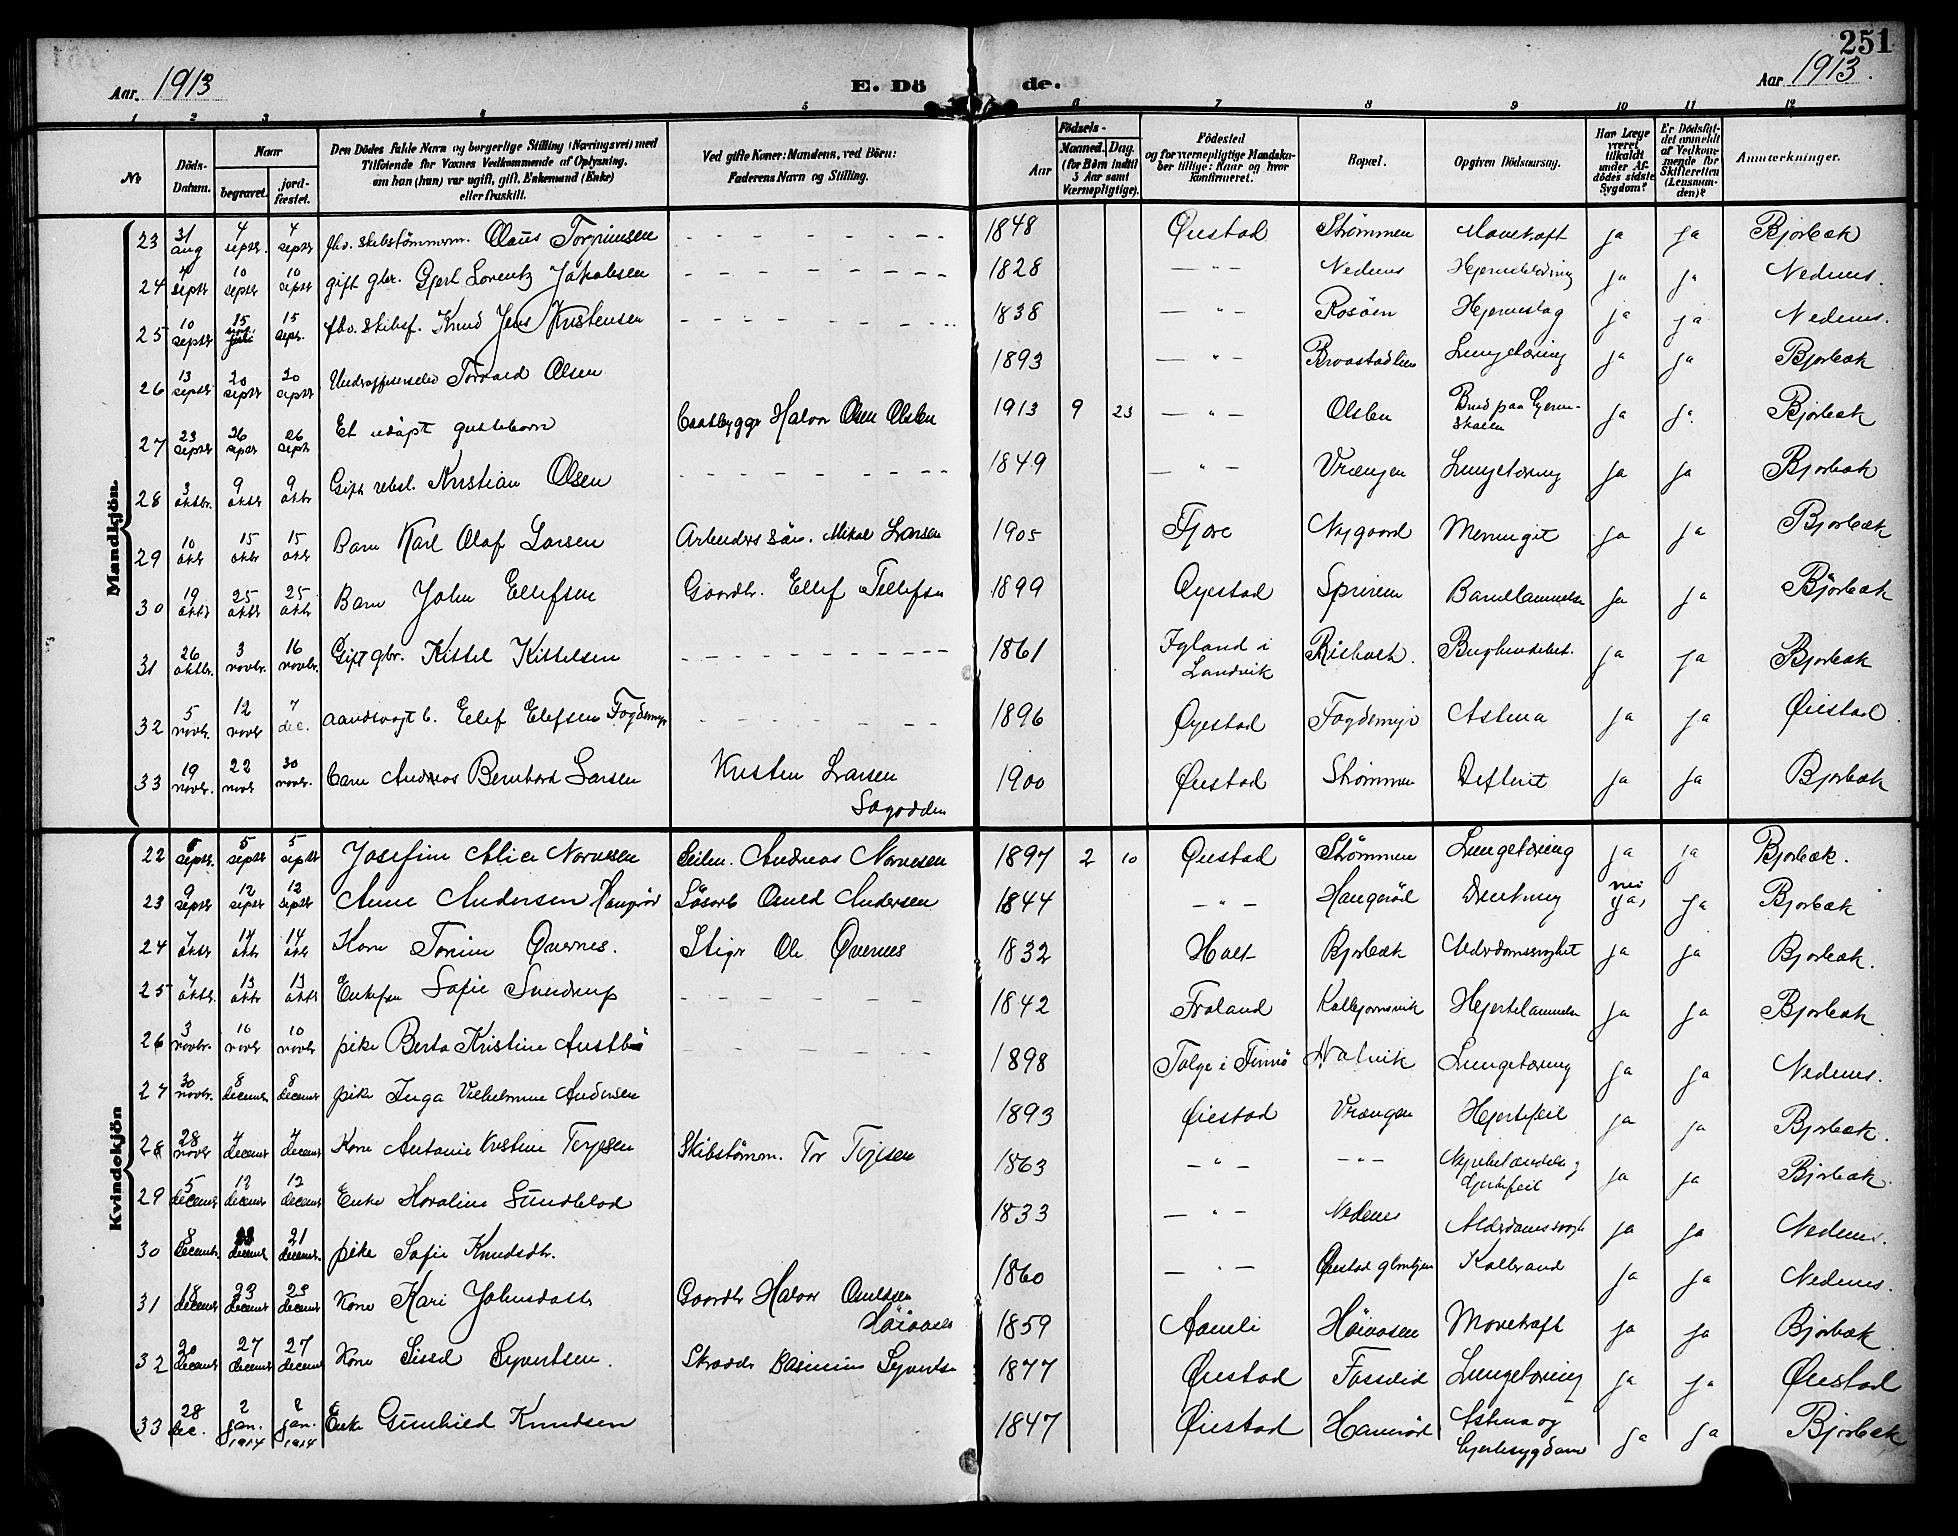 251
Aar. 1913 E. Dö de. Aar 1913.
1 2 3 4 5 6 7 8 9 10 11 12
No
Döds-Datum.
Naar
begravet.
jordfæstet.
Den Dödes fulde Navn og borgerlige Stilling (Næringsvei) med
Tilføiende for Voxnes Vedkommende af Oplysning,
om han (hun) var ugift, gift, Enkemand (Enke)
eller fraskilt.
Ved gifte Koner: Mandens, ved Börn:
Faderens Navn og Stilling.
Födsels-
Aar
Maaned. Dag.
(for Börn indtil
5 Aar samt
Værnepligtige).
Födested
og for værnepligtige Mandska-
ber tillige: Naar og hvor
konfirmeret.
Bopæl.
Opgiven Dödsaarsag.
Har Læge
været
tilkaldt
under Af-
dödes sidste
Sygdom?
Er Dödsfal-
det anmeldt
af Vedkom-
mende for
Skifteretten
(Lensman-
den)?
Anmærkninger.
Mandkjön.
23 31 aug 4 septr. 4 septr fhv. skibstömmerm. Olaus Torjussen - - - 1848 Øiestad Strømmen Mavekræft ja ja Bjorbæk
24 septr 10 septr 10 septr gift gbr. Gjert Lorentz Jakobsen - - - 1828 — " — Nedenes Hjerneblødning ja ja Nedenes.
25 10 septr 15 15 sepr. fhv. skibsf. Knud Jens Kristensen - - - 1838 — " — Rosøen Hjerneslag ja ja Nedenes.
26 13 septr 20 septr 20 septr Torvald Olsen 1893 — " — Lungetæring ja ja Bjorbæk
27 23 septr 26 septr 26 septr Et udøpt guttebarn Baatbygger Halvor Olsen Olsben 1913 9 23 — " — Olsben Brud paa Hjerne-
skallen ja ja Bjorbæk
28 3 oktbr. 9 oktr 9 oktr Gift rebsl. Kristian Olsen - - - 1849 — " — Vrængen Lungetæring ja ja Bjorbæk
29 10 okt 15 oktr 15 oktr Barn Karl Olaf Larsen Arbeiders sön. Mikal Larsen 1905 Fjære Nygaard Meningit ja ja Bjorbæk
30 19 oktr 25 oktr 25 oktr Barn John Ellefsen Gaardbr. Ellef Tellefsen 1899 Øyestad ja ja Bjørbæk
31 26 oktbr. 3 novbr. 16 novbr. Gift gbr. Kittel Kittelsen - - - 1861 Igland i
Landvik Bughindebet. ja ja Bjorbæk
32 5 novbr. 12 novbr 7 dec. Ellef Ellefsen Fogdemyr - - - 1896 Øyestad Fogdemyr Astma ja ja Øiestad.
33 19 novbr. 22 novr 30 novbr. barn Andreas Bernhard Larsen Kristen Larsen
Sagodden 1900 Øiestad Strømmen Difterit ja ja Bjorbæk
Kvindekjön
22 septr. 5 septr 5 septr Josefine Alice Norvesen Andreas Norvesen 1897 2 10 Øiestad Strømmen Lungetæring ja ja Bjorbæk.
23 9 septr 12 septr 12 septr Anne Andersen Haugerød Andersen 1844 - " - Haugerød nei
ja, ja Bjorbæk
24 7 oktr 14 oktr 14 okt Kone Tomine Øvernes. Stigr Ole Øvernes 1832 Holt Bjorbæk Alderdomssvaghet ja ja Bjorbæk.
25 7 oktr. 13 oktr 13 oktr Enkefru Sofie Sundrup - - - 1842 Froland Kalbjornsvik ja ja Bjorbæk
26 3 novbr. 10 novbr 10 novbr pike Berta Kristine Austbö - - - 1898 Talge i Finnö Natvik Lungetæring ja ja Nedenes.
27 30 novbr. 8 decembr 8 decembr pike Inga Vilhelmine Andersen 1893 Øiestad Vrængen Hjertefeil ja ja Bjorbæk.
28 28 novbr 4 decembr 4 decembr Kone Antonie Kristine Terjesen Skibstömm. Tor Terjesen 1863 — " — - " - Nyrebetændelse og
Hjertefeil ja ja Bjorbæk.
29 5 decembr 12 decembr 12 decembr Enke Sundblad 1833 — " — Nedenes Alderdomssvagh ja ja Nedenes.
30 8 decembr. decembr 21 decembr. pike Sofie Knudsdtr. 1860 — " — Øiestad Koldbrand ja ja Nedenes.
31 18 decembr 23 decembr 23 decembr Kone Kari Johnsdatter Gaardbr Halvor
Høiaasen 1859 Aamli Høiaasen Mavekræft ja ja Bjorbæk
32 20 decembr 27 decembr 27 decembr Kone Sissel Syvertsen. Skrædder Syvertsen 1877 Øiestad Lungetæring ja ja Øiestad
33 28 dec. 2 jan. 1914 2 jan. 1914 Enke Gunhild Knudsen 1847 Øiestad Astma og
Hjertesygdom ja ja Bjorbæk